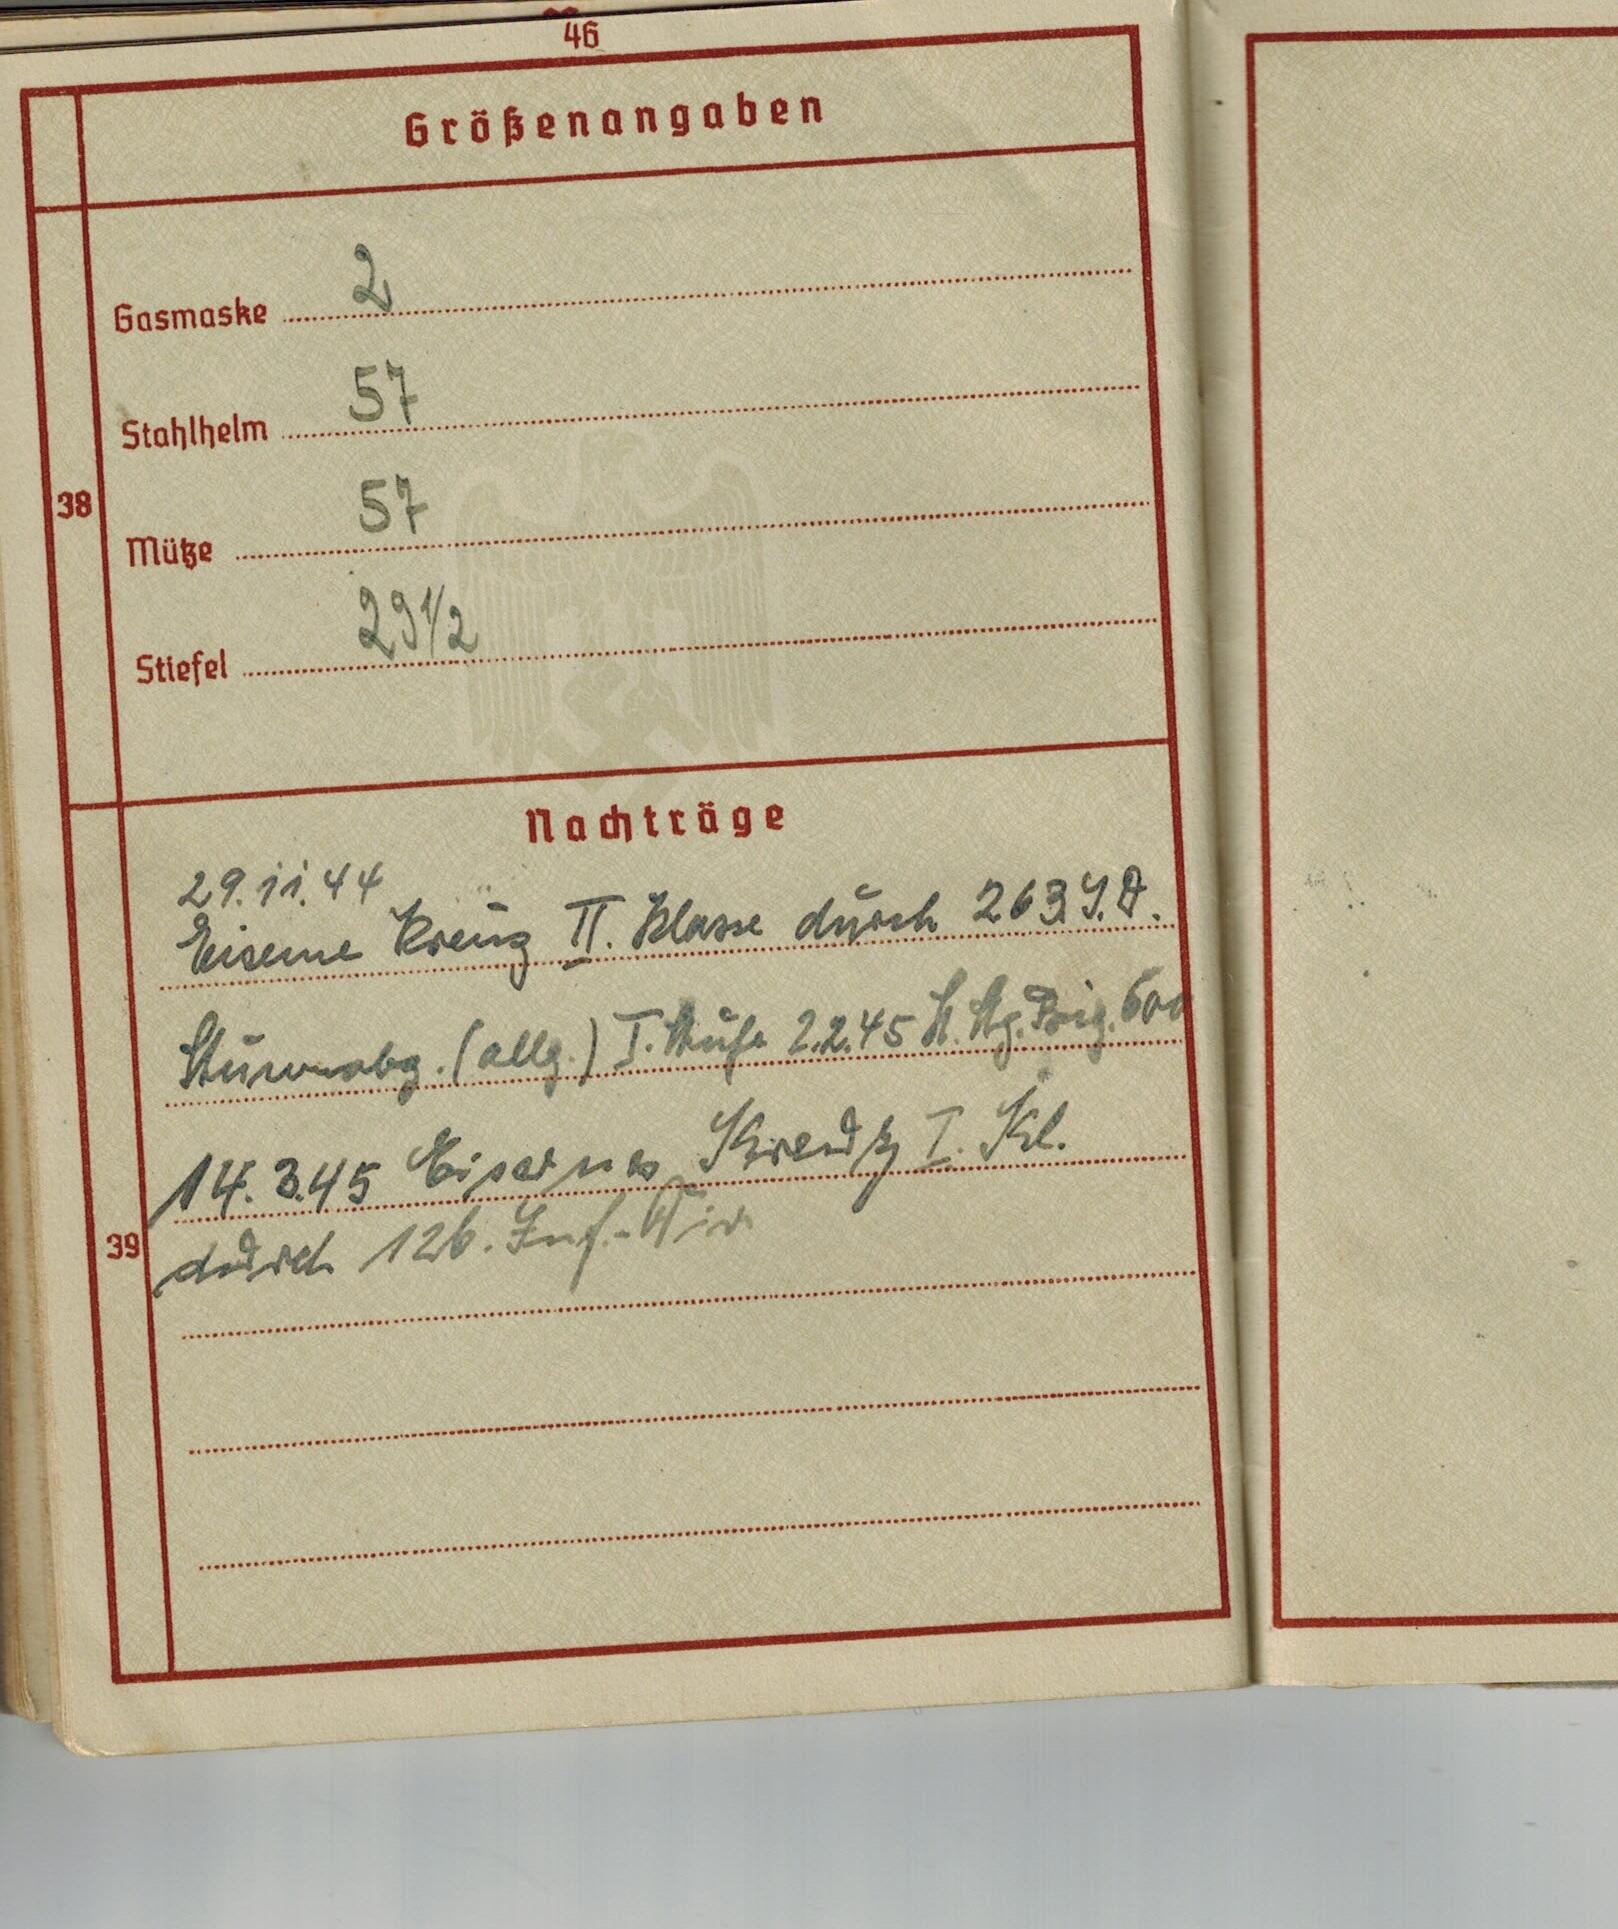 46
Größenangaben
Gasmaske 2
Stahlhelm 57
38
Mütze 57
Stiefel 29 1/2
Nachträge
29.11.44
Eiserne Kreuz II. Klasse durch 263. I.D.
Sturmabz. (allg.) I. Stufe 2.2.45 H. Stg. Brig. 600
14.3.45 Eisernes Kreutz I. Kl.
39
durch 126. Inf.-Div